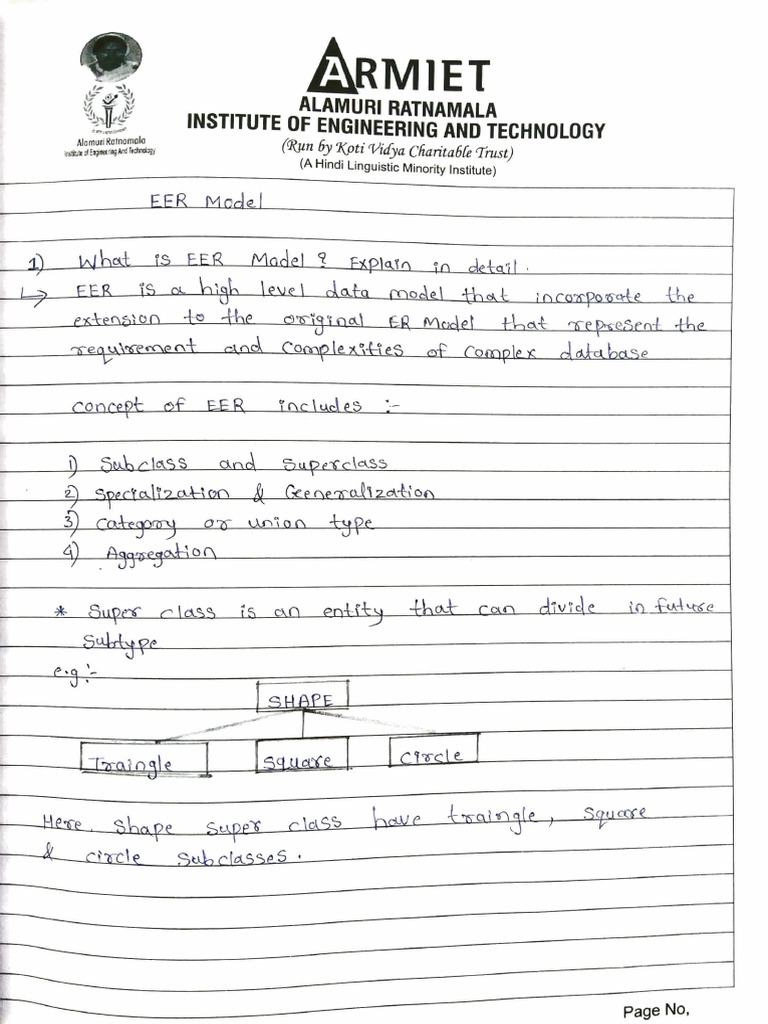 ARMIET
ALAMURI RATNAMALA
INSTITUTE OF ENGINEERING AND TECHNOLOGY
(Run by Koti Vidya Charitable Trust)
(A Hindi Linguistic Minority Institute)
Alamuri Ratnamala
Institute of Engineering And Technology
EER Model
1) What is EER Model? Explain in detail.
↳ EER is a high level data model that incorporate the
extension to the original ER Model that represent the
requirement and complexities of complex database
concept of EER includes :-
1) Subclass and Superclass
2) Specialization & Geeneralization
3) Category or union type
4) Aggregation
* Super class is an entity that can divide in future
Subtype
e.g :-
SHAPE
Traingle Square Circle
Here, Shape super class have traingle, square
& circle Subclasses.
Page No,